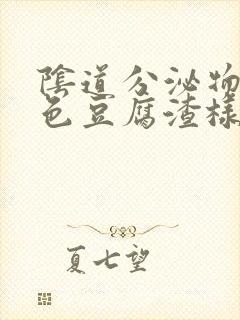 陰道分泌物
色豆腐渣樣
夏七望